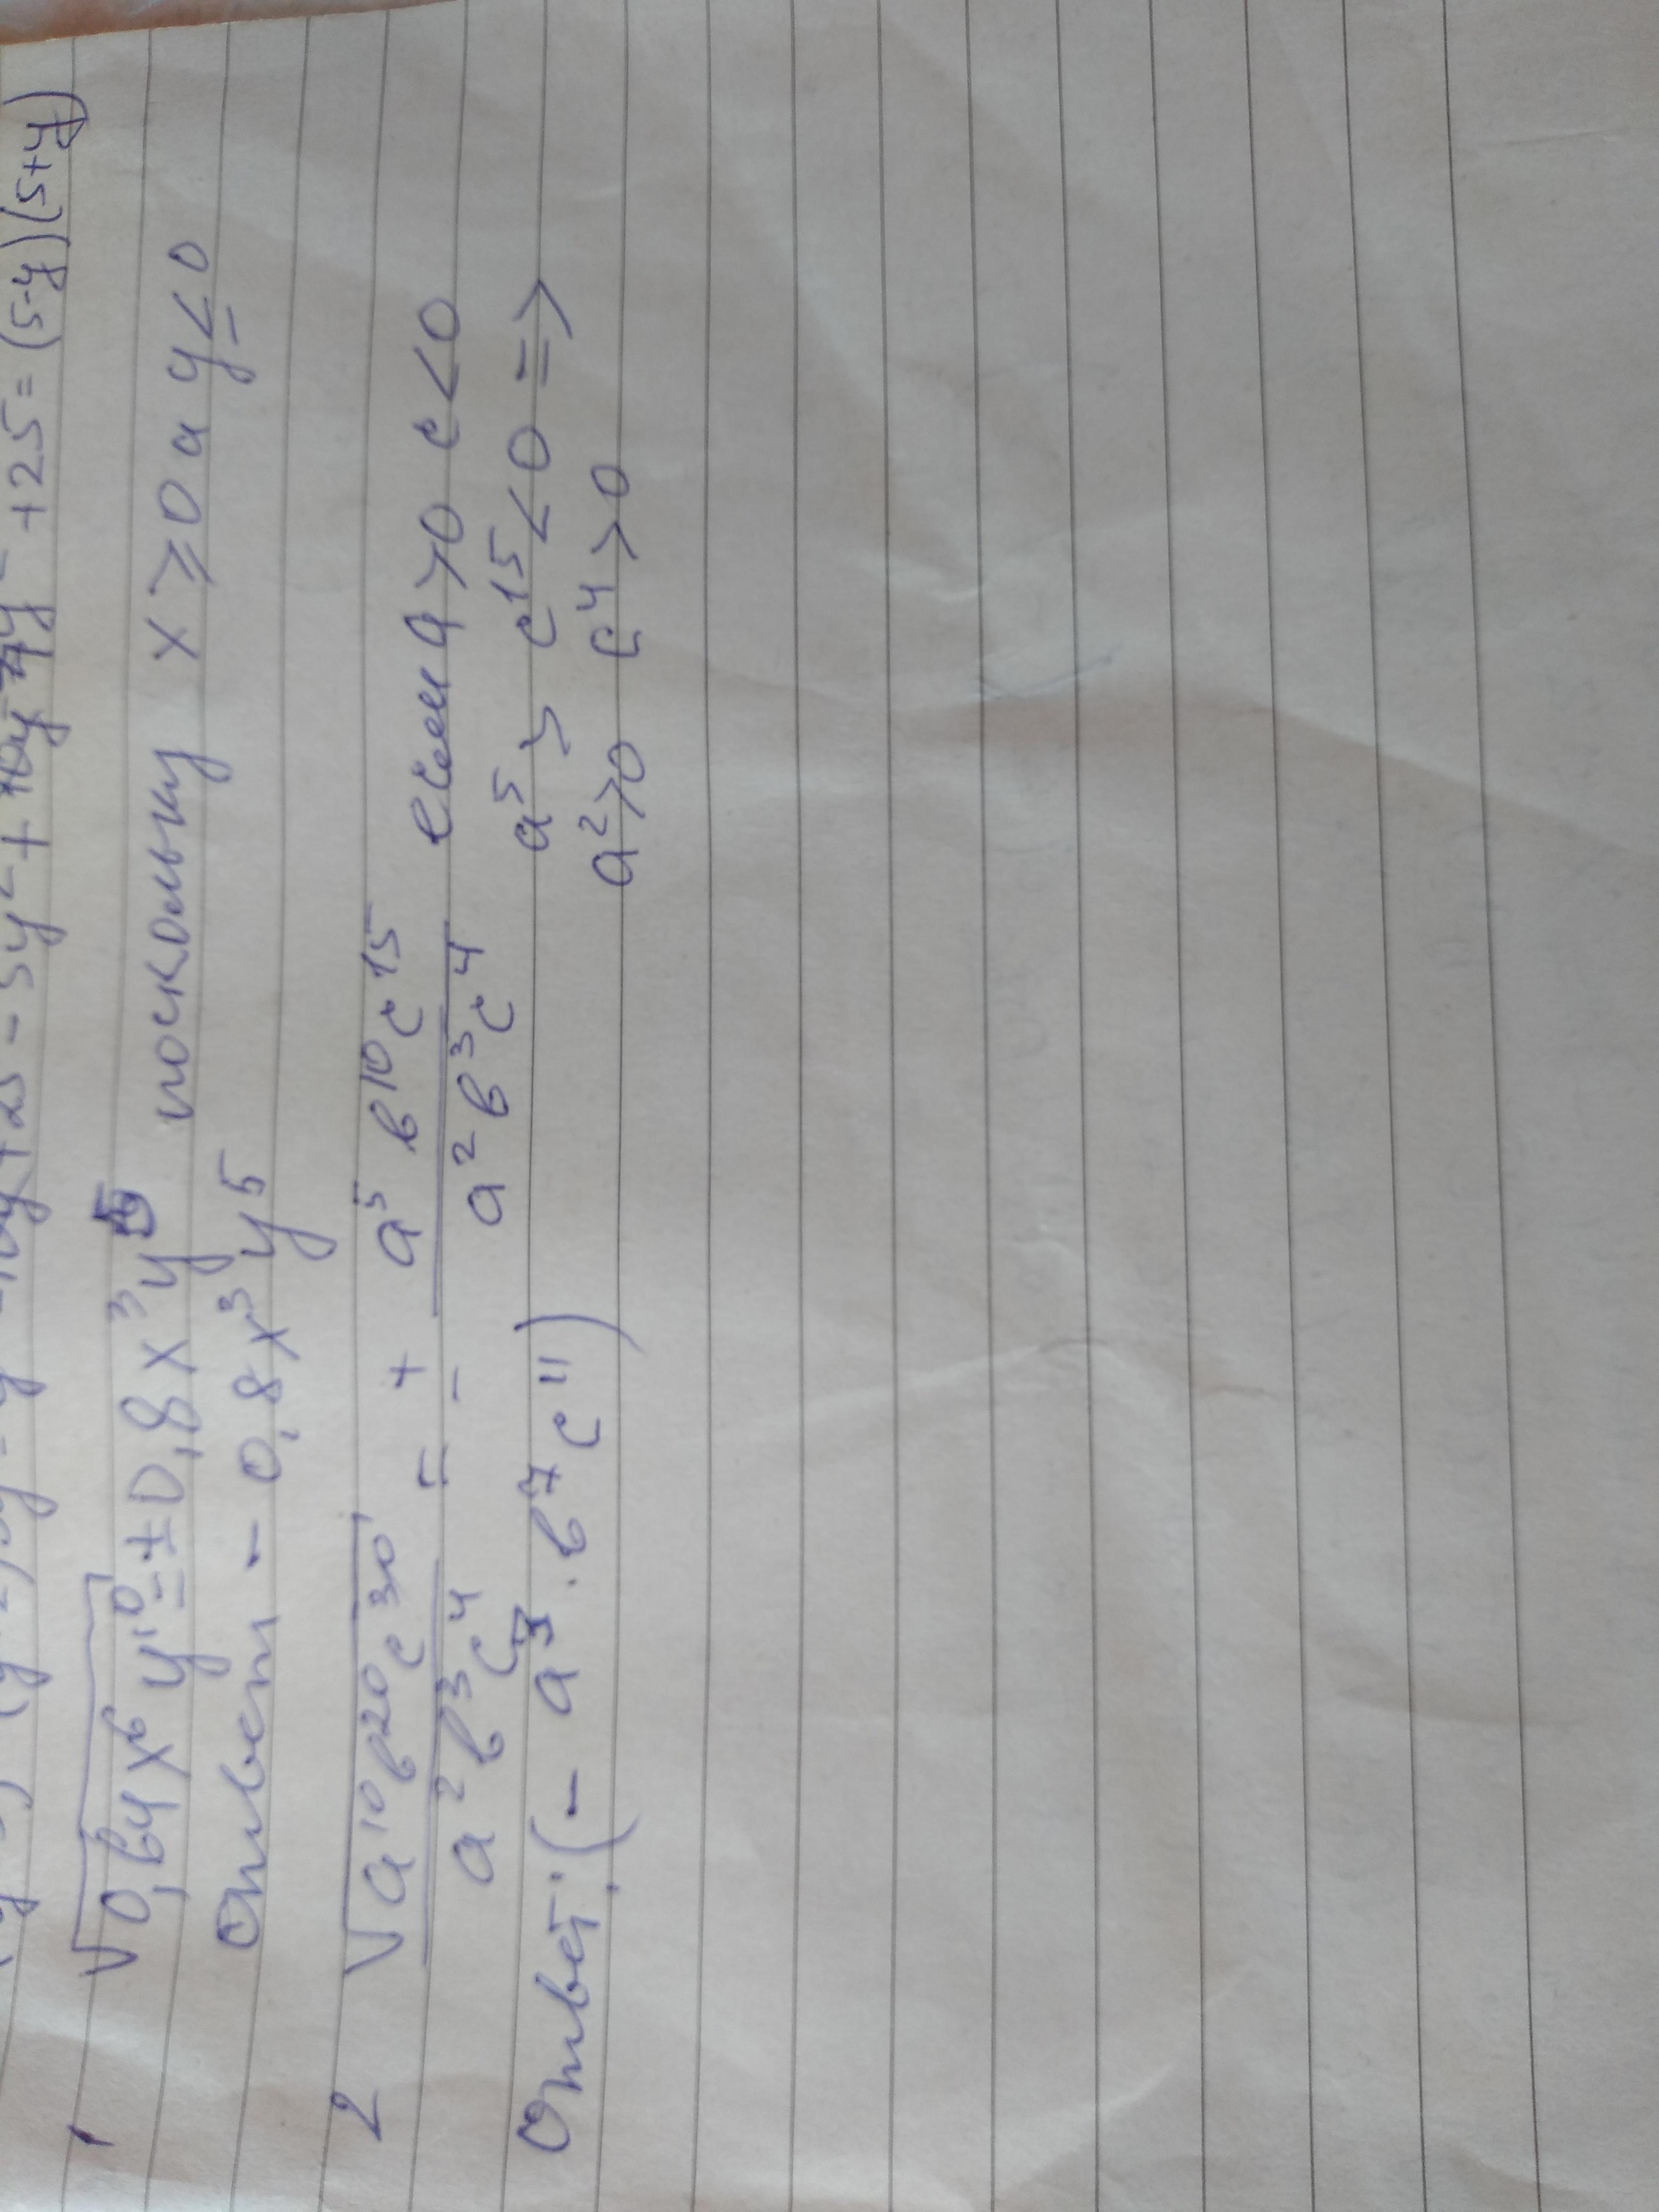 +25 - 5y² + 10y - y² + 25 = (5-y)(5+y)
1 √0,64x⁶y¹⁰ = ±0,8x³y⁵ поскольку x ≥ 0 а y ≤ 0
Ответ - 0,8x³y⁵
2 √a¹⁰b²⁰c³⁰ / a²b³c⁴ = ± a⁵b¹⁰c¹⁵ / a²b³c⁴ если a>0 c<0
a⁵ > c¹⁵<0 =>
a²>0 c⁴>0
Ответ: (- a³·b⁷c¹¹)